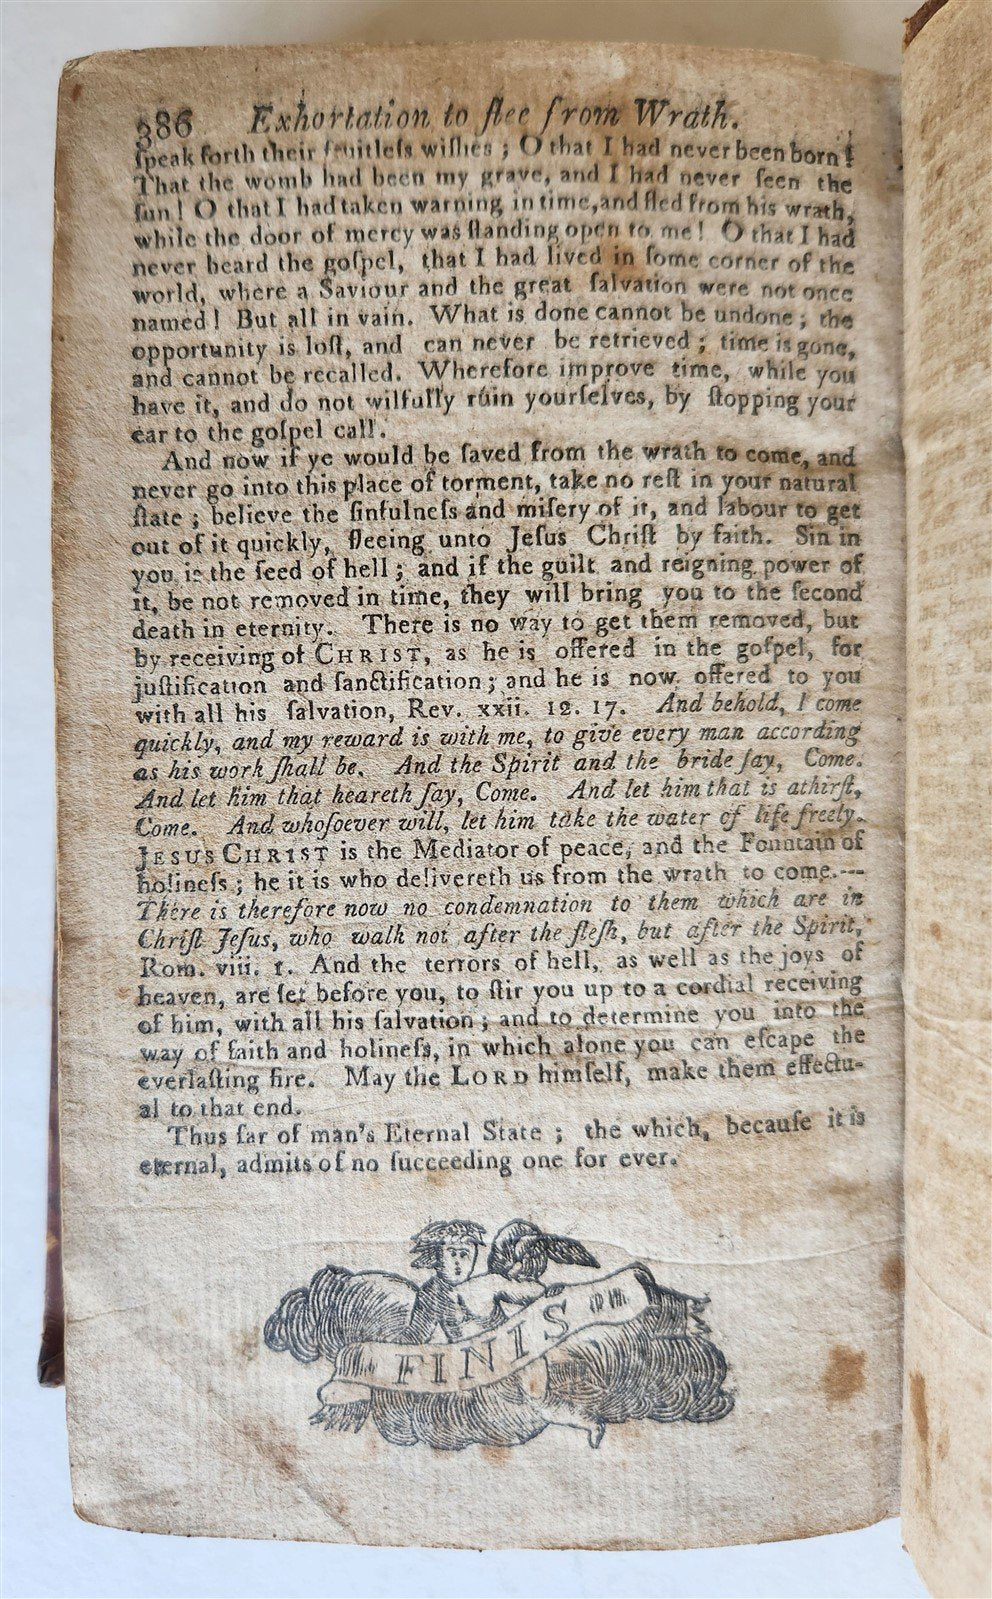 386 Exhortation to flee from Wrath.
ſpeak forth their fruitleſs wiſhes ; O that I had never been born !
That the womb had been my grave, and I had never ſeen the
ſun! O that I had taken warning in time, and fled from his wrath,
while the door of mercy was ſtanding open to me! O that I had
never heard the goſpel, that I had lived in ſome corner of the
world, where a Saviour and the great ſalvation were not once
named! But all in vain. What is done cannot be undone ; the
opportunity is loſt, and can never be retrieved ; time is gone,
and cannot be recalled. Wherefore improve time, while you
have it, and do not wilfully ruin yourſelves, by ſtopping your
ear to the goſpel call.
And now if ye would be ſaved from the wrath to come, and
never go into this place of torment, take no reſt in your natural
ſtate ; believe the ſinfulneſs and miſery of it, and labour to get
out of it quickly, fleeing unto Jeſus Chriſt by faith. Sin in
you is the ſeed of hell ; and if the guilt and reigning power of
it, be not removed in time, they will bring you to the ſecond
death in eternity. There is no way to get them removed, but
by receiving of CHRIST, as he is offered in the goſpel, for
juſtification and ſanctification ; and he is now offered to you
with all his ſalvation, Rev. xxii. 12. 17. And behold, I come
quickly, and my reward is with me, to give every man according
as his work ſhall be. And the Spirit and the bride ſay, Come.
And let him that heareth ſay, Come. And let him that is athirſt,
Come. And whoſoever will, let him take the water of life freely.
JESUS CHRIST is the Mediator of peace, and the Fountain of
holineſs ; he it is who delivereth us from the wrath to come.---
There is therefore now no condemnation to them which are in
Chriſt Jeſus, who walk not after the fleſh, but after the Spirit,
Rom. viii. 1. And the terrors of hell, as well as the joys of
heaven, are ſet before you, to ſtir you up to a cordial receiving
of him, with all his ſalvation ; and to determine you into the
way of faith and holineſs, in which alone you can eſcape the
everlaſting fire. May the LORD himſelf, make them effectu-
al to that end.
Thus far of man's Eternal State ; the which, becauſe it is
eternal, admits of no ſucceeding one for ever.
FINIS